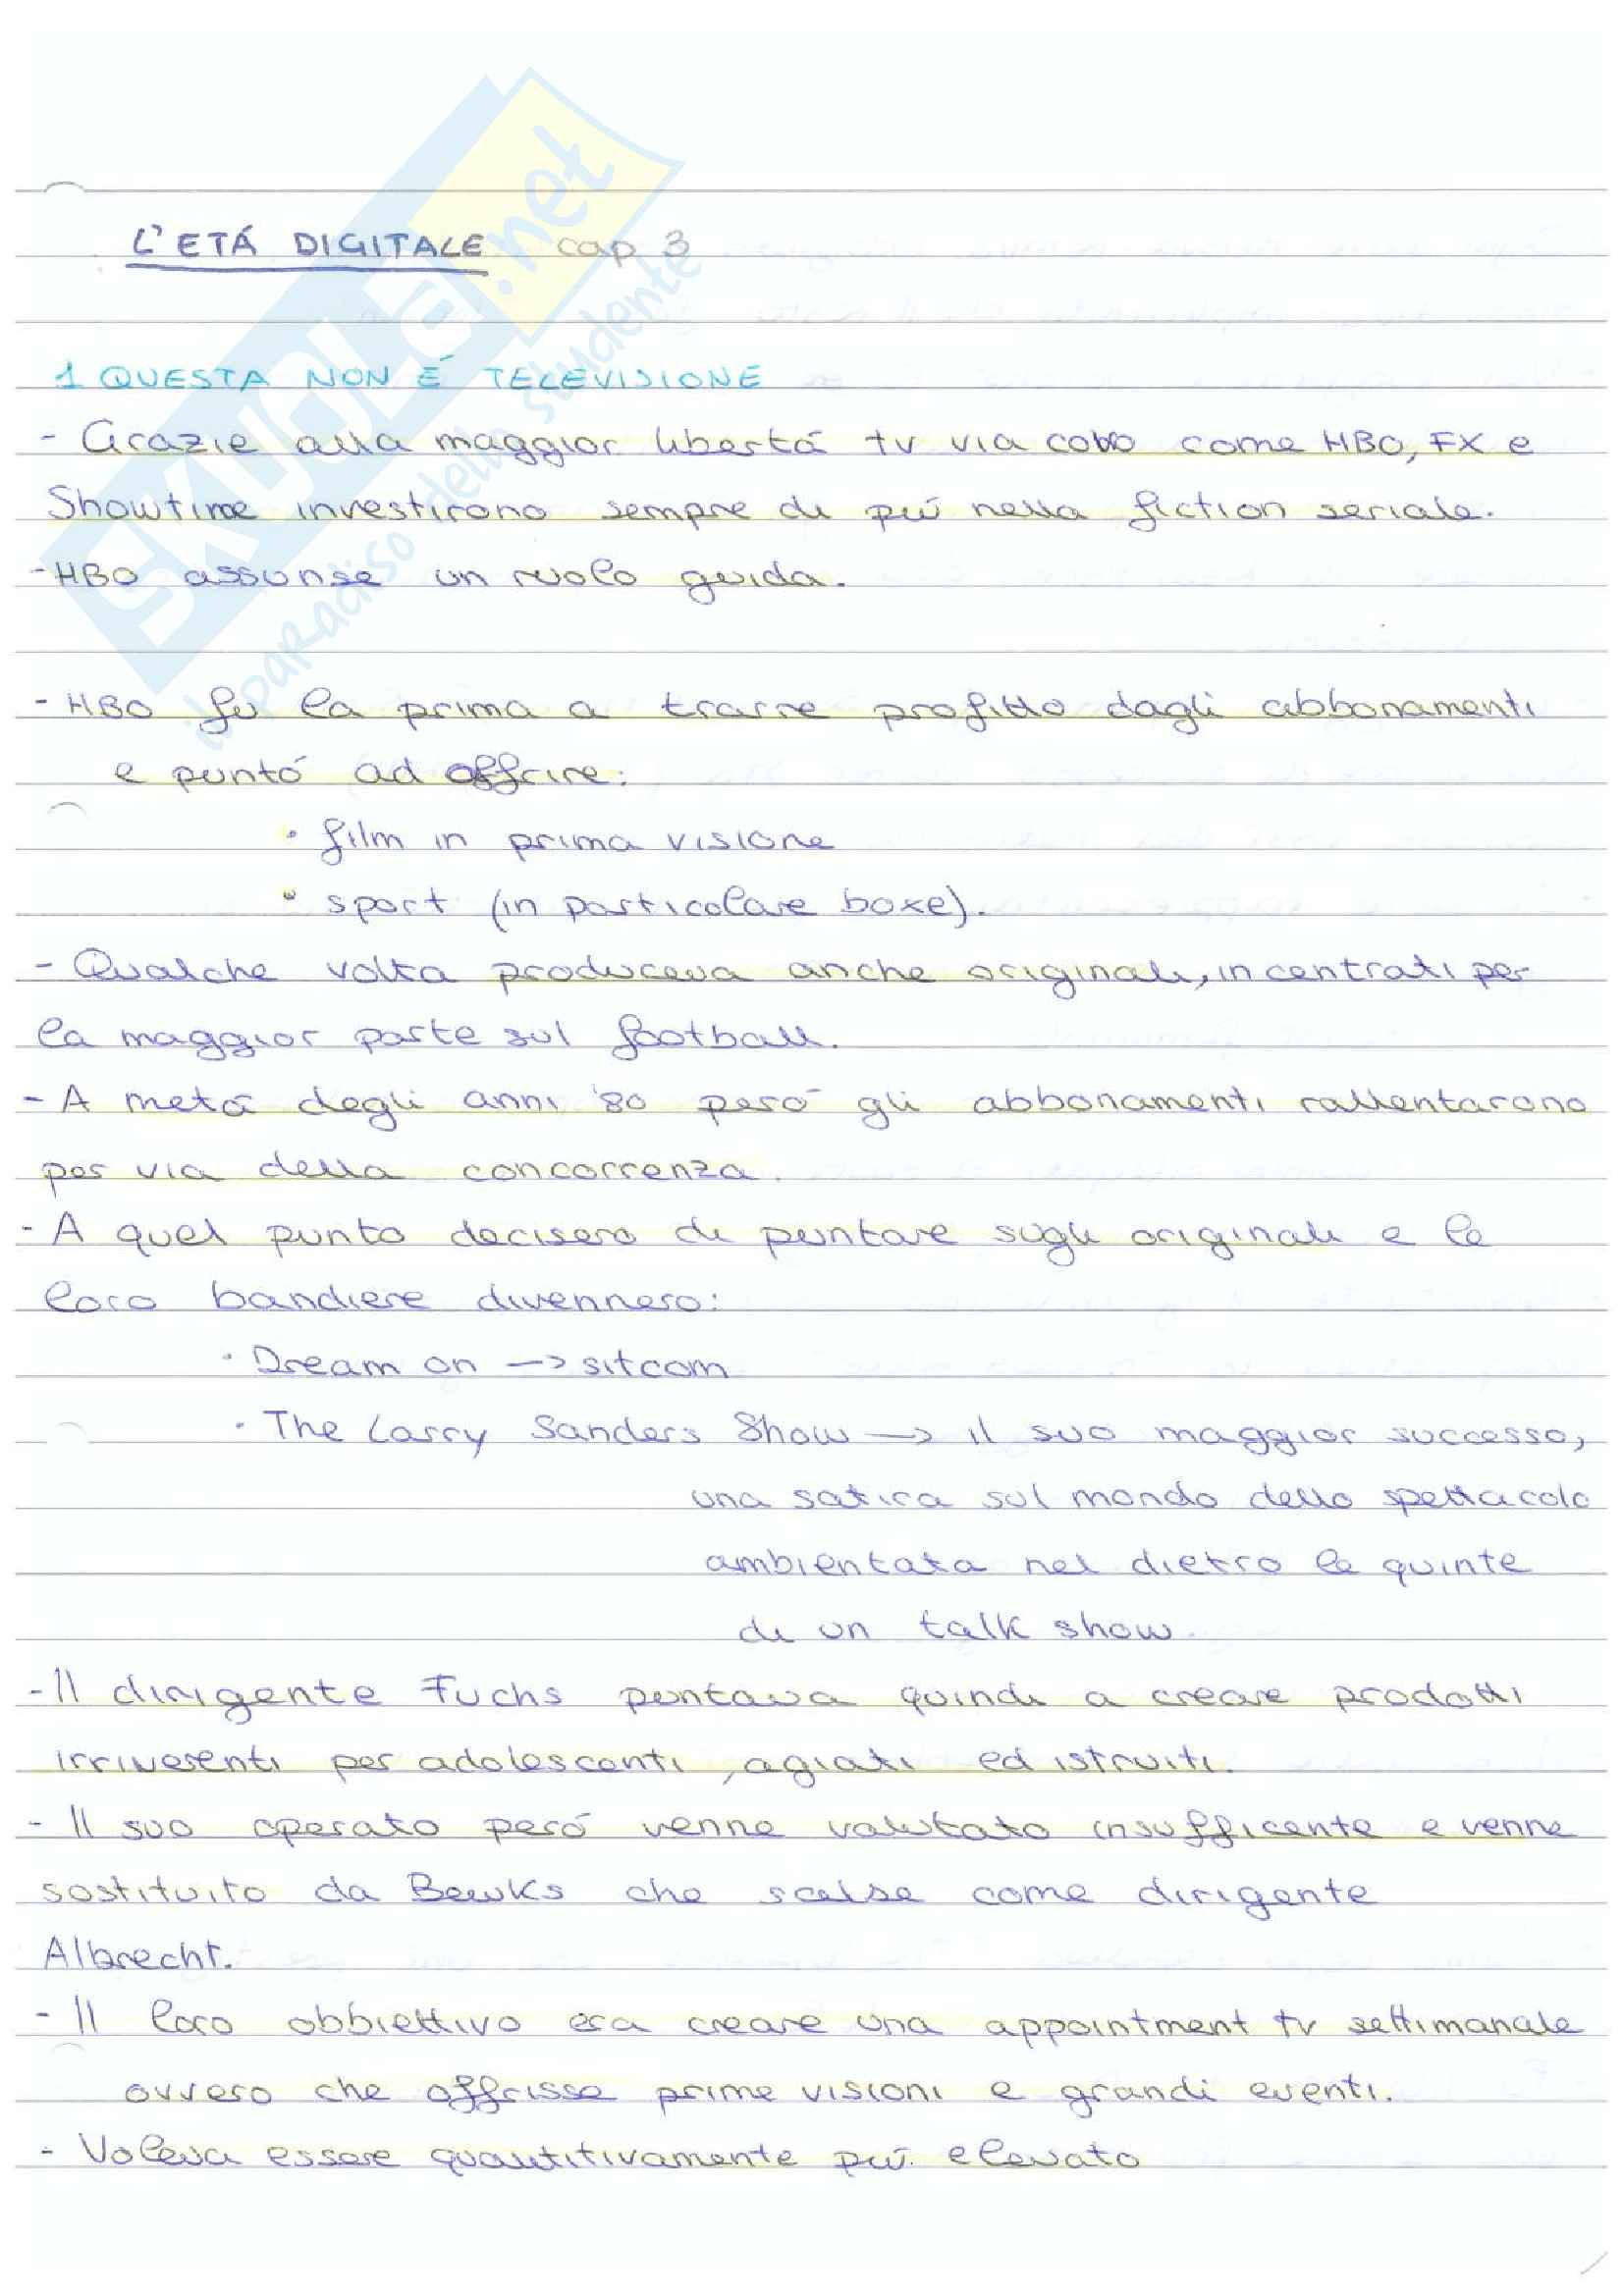 L'ETÁ DIGITALE cap 3
1 QUESTA NON É TELEVISIONE
- Grazie alla maggior libertá tv via cavo come HBO, FX e
Showtime investirono sempre di piú nella fiction seriale.
- HBO assunse un ruolo guida.
- HBO fu la prima a trarre profitto dagli abbonamenti
e puntó ad offrire:
• film in prima visione
• sport (in particolare boxe).
- Qualche volta produceva anche originali, incentrati per
la maggior parte sul football.
- A metá degli anni '80 peró gli abbonamenti rallentarono
per via della concorrenza.
- A quel punto decisero di puntare sugli originali e le
loro bandiere divennero:
• Dream on -> sitcom
• The Larry Sanders Show -> il suo maggior successo,
una satira sul mondo dello spettacolo
ambientata nel dietro le quinte
di un talk show.
- Il dirigente Fuchs puntava quindi a creare prodotti
irriverenti per adolescenti, agiati ed istruiti.
- Il suo operato peró venne valutato insufficente e venne
sostituito da Bewks che scelse come dirigente
Albrecht.
- Il loro obbiettivo era creare una appointment tv settimanale
ovvero che offrisse prime visioni e grandi eventi.
- Voleva essere quantitivamente piú elevato
SKUOLA.net
il paradiso dello studente